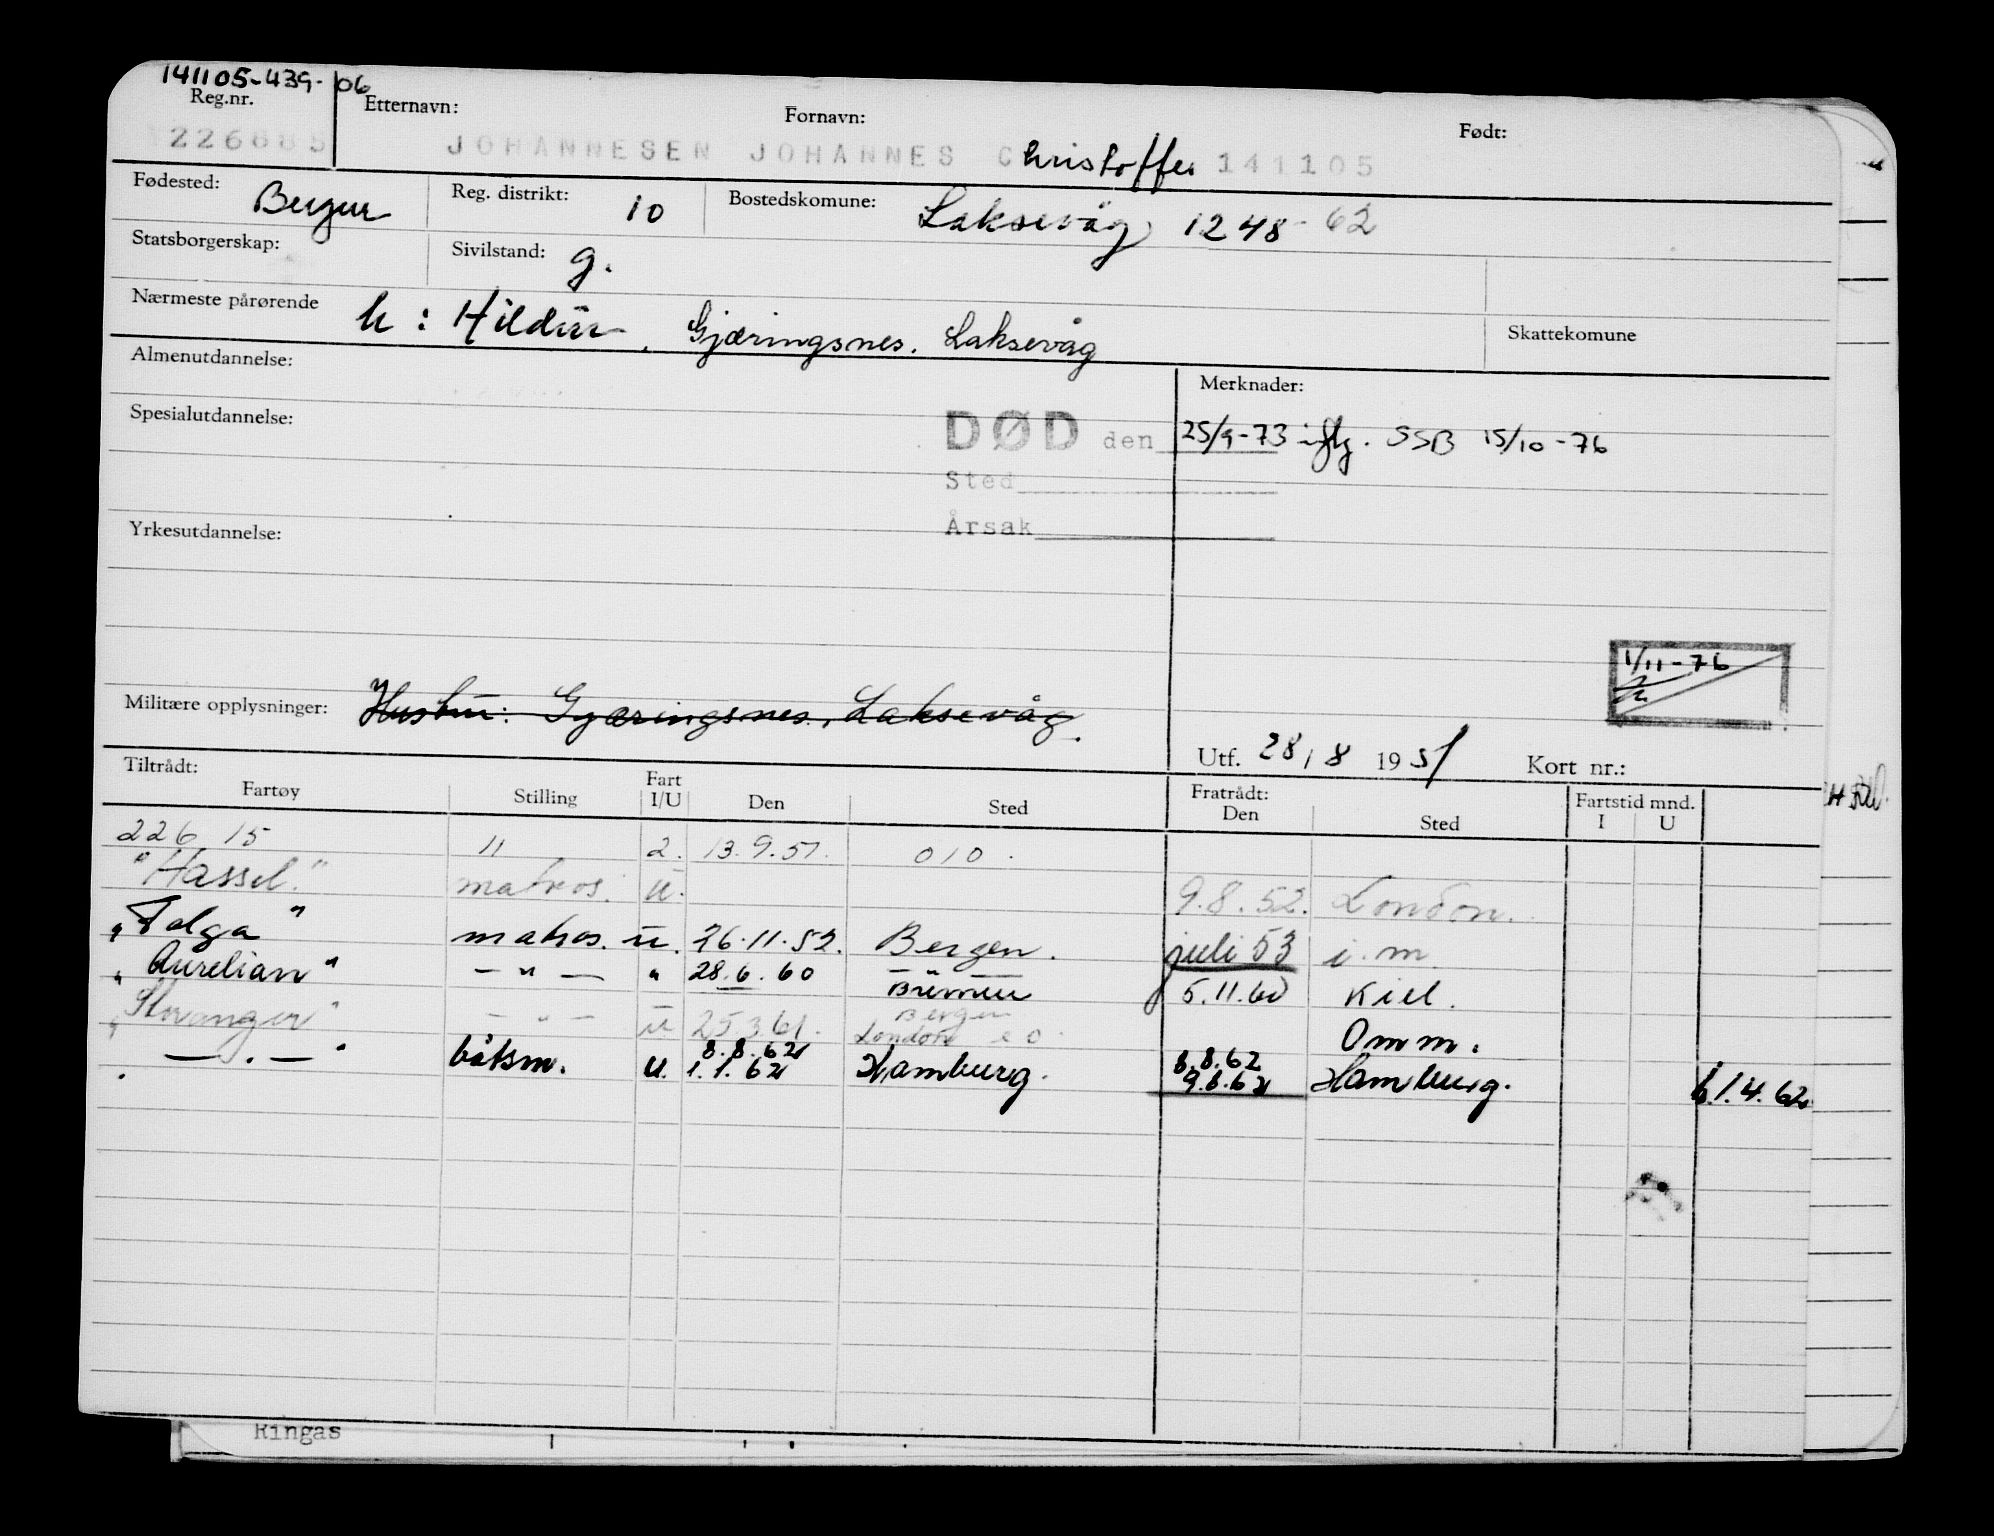 141105-439-06
Reg.nr. Etternavn: Fornavn: Født:
JOHANNESEN JOHANNES Christoffer 141105
Fødested: Bergen Reg. distrikt: 10 Bostedskomune: Laksevåg 1248-62
Statsborgerskap: Sivilstand: g.
Nærmeste pårørende h: Hildur, Gjæringsnes. Laksevåg Skattekomune
Almenutdannelse: Merknader:
Spesialutdannelse: DØD den 25/9-73 iflg. SSB 15/10-76
Sted
Årsak
Yrkesutdannelse:
1/11-76
Militære opplysninger: Hustru: Gjæringsnes, Laksevåg.
Utf. 28/8 1951 Kort nr.:
Tiltrådt: Fratrådt: Fartstid mnd.
Fartøy Stilling Fart I/U Den Sted Den Sted I U
226 15 11 2. 13.9.51. 010.
"Hassel" matros. u. 9.8.52. London.
"Tolga" matros. u. 26.11.52. Bergen. juli 53 i.m.
"Aurelian" - " - " 28.6.60 Bremen 5.11.60 Kiel.
"Stavanger" - " - u 25.3.61. Bergen London Omm.
- " - båtsm. u. 8.8.62 1.1.62 Hamburg. 8.8.62 9.6.62 Hamburg. 1.4.62
Ringås